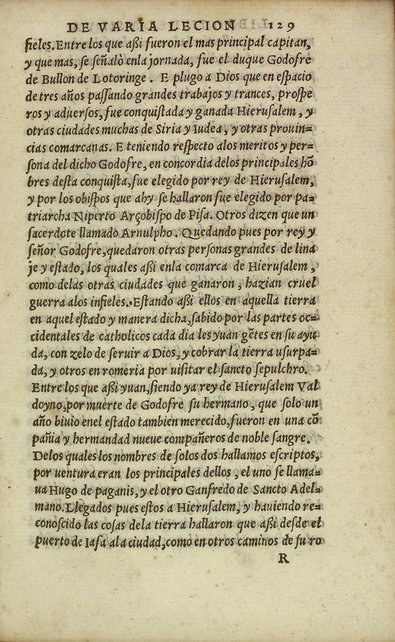 DE VARIA LECION 129
fieles. Entre los que aßi fueron el mas principal capitan,
y que mas, se señalò enla jornada, fue el duque Godofre
de Bullon de Lotoringe. E plugo a Dios que en espacio
de tres años passando grandes trabajos y trances, prospe
ros y aduersos, fue conquistada y ganada Hierusalem, y
otras ciudades muchas de Siria y Iudea, y otras prouin=
cias comarcanas. E teniendo respecto alos meritos y per=
sona del dicho Godofre, en concordia delos principales hō
bres desta conquista, fue elegido por rey de Hierusalem,
y por los obispos que ahy se hallaron fue elegido por pa=
triarcha Niperto Arçobispo de Pisa. Otros dizen que un
sacerdote llamado Arnulpho. Quedando pues por rey y
señor Godofre, quedaron otras personas grandes de lina
je y estado, los quales aßi enla comarca de Hierusalem,
como delas otras ciudades que ganaron, hazian cruel
guerra alos infieles. Estando aßi ellos en aquella tierra
en aquel estado y manera dicha, sabido por las partes oc=
cidentales de catholicos cada dia les yuan gētes en su ayu
da, con zelo de seruir a Dios, y cobrar la tierra usurpa=
da, y otros en romeria por uisitar el sancto sepulchro.
Entre los que aßi yuan, siendo ya rey de Hierusalem Val
doyno, por muerte de Godofre su hermano, que solo un
año biuio enel estado tambien merecido, fueron en una cō
pañia y hermandad nueue compañeros de noble sangre.
Delos quales los nombres de solos dos hallamos escriptos,
por uentura eran los principales dellos, el uno se llama=
ua Hugo de paganis, y el otro Ganfredo de Sancto Adel=
mano. Llegados pues estos a Hierusalem, y hauiendo re=
conoscido las cosas dela tierra hallaron que aßi desde el
puerto de Iafa ala ciudad, como en otros caminos de fu ro
R